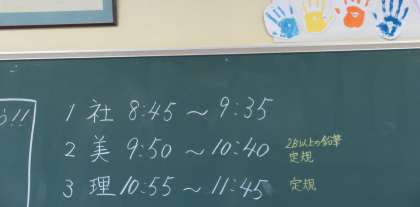 う!!
1 社 8:45 ～ 9:35
2 美 9:50 ～ 10:40 2B以上の鉛筆
定規
3 理 10:55 ～ 11:45 定規